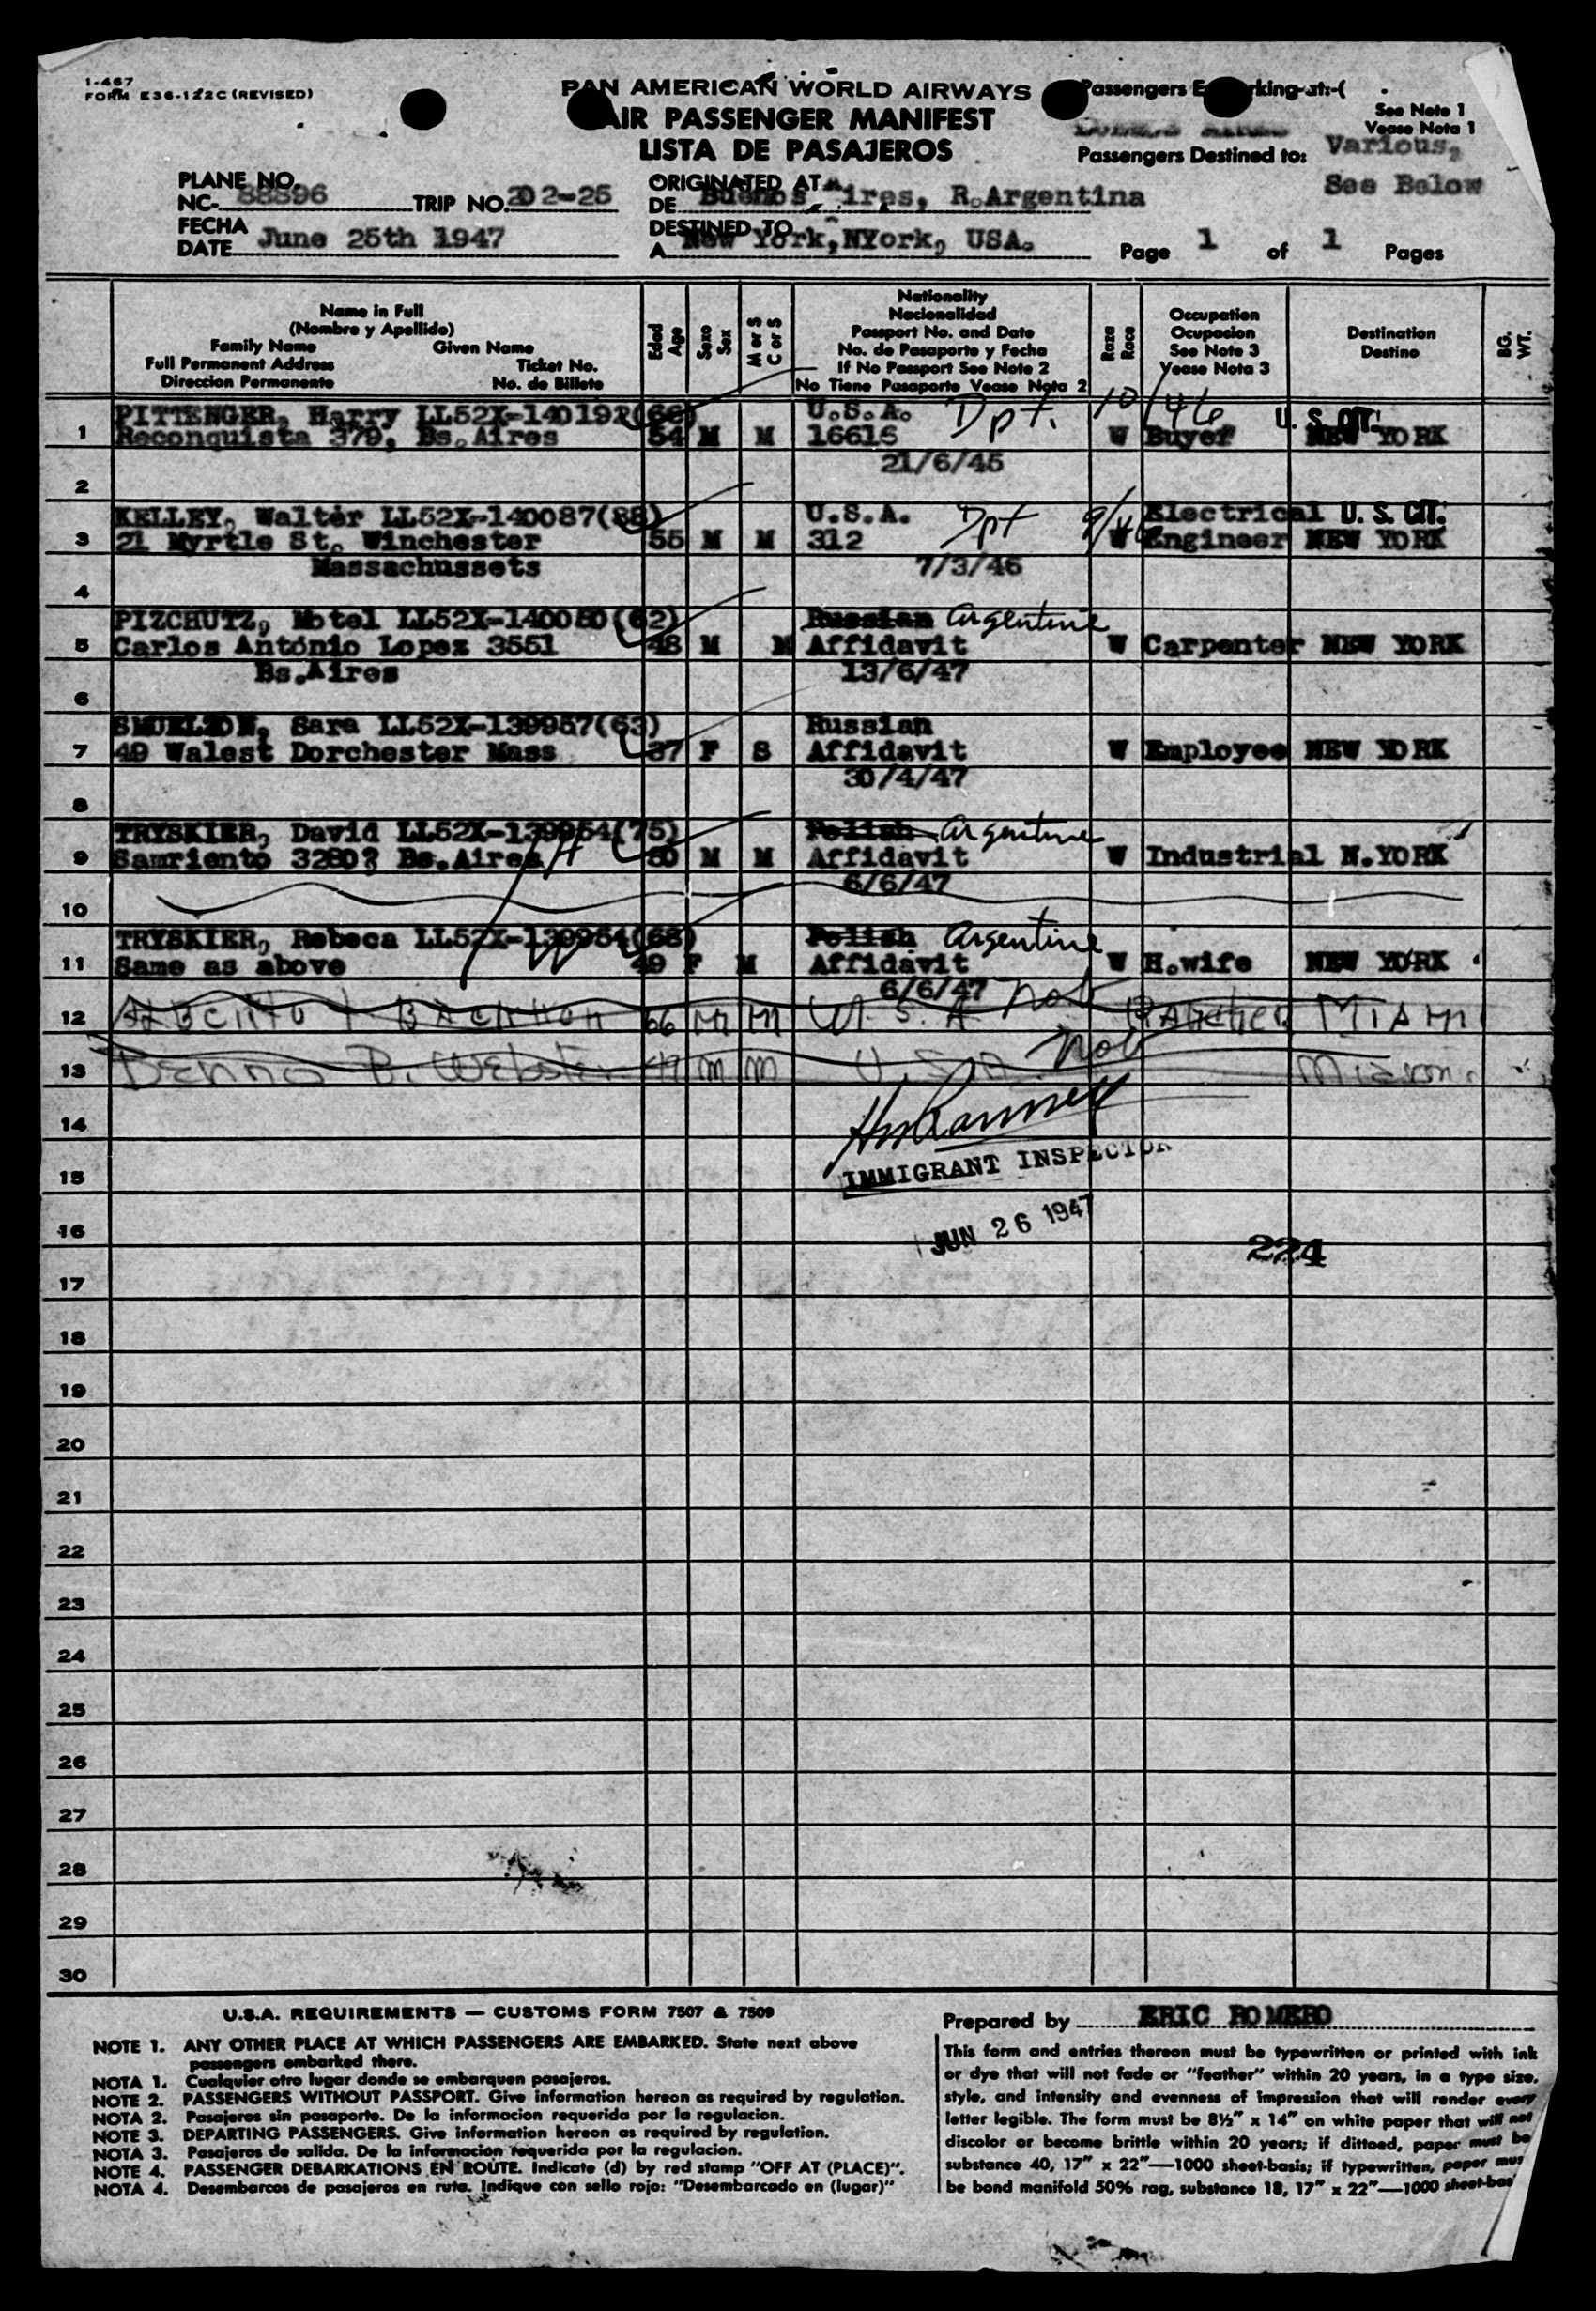 1-467
FORM E36-122C (REVISED)
PAN AMERICAN WORLD AIRWAYS
AIR PASSENGER MANIFEST
LISTA DE PASAJEROS
Passengers E rking-at:-(
See Note 1
Vease Nota 1
Passengers Destined to: Various,
See Below
PLANE NO.
NC- 88896 TRIP NO. 202-25
FECHA
DATE June 25th 1947
ORIGINATED AT
DE Buenos Aires, R.Argentina
DESTINED TO
A New York, NYork, USA.
Page 1 of 1 Pages
Name in Full
(Nombre y Apellido)
Family Name Given Name
Full Permanent Address Ticket No.
Direccion Permanente No. de Billete
Edad
Age
Sexo
Sex
M or S
C or S
Nationality
Nacionalidad
Passport No. and Date
No. de Pasaporte y Fecha
If No Passport See Note 2
No Tiene Pasaporte Vease Nota 2
Raza
Race
Occupation
Ocupacion
See Note 3
Vease Nota 3
Destination
Destino
BG.
WT.
PITTENGER, Harry LL52X-140192(66) U.S.A. Dpt. 10/46 U. S. CIT.
1 Reconquista 379, Bs.Aires 54 M M 16616 W Buyer NEW YORK
21/6/45
2
KELLEY, Walter LL52X-140087(88) U.S.A. Dpt 9/46 Electrical U. S. CIT.
3 21 Myrtle St. Winchester 55 M M 312 W Engineer NEW YORK
Massachussets 7/3/46
4
PIZCHUTZ, Motel LL52X-140050(62) Russian Argentine
5 Carlos António Lopez 3551 48 M M Affidavit W Carpenter NEW YORK
Bs.Aires 13/6/47
6
SMUELZON, Sara LL52X-139957(63) Russian
7 49 Walest Dorchester Mass 37 F S Affidavit W Employee NEW YORK
30/4/47
8
TRYSKIER, David LL52X-139954(75) Polish Argentine
9 Samriento 3280? Bs.Aires 50 M M Affidavit W Industrial N.YORK
6/6/47
10
TRYSKIER, Rebeca LL52X-139954(68) Polish Argentine
11 Same as above 49 F M Affidavit W H.wife NEW YORK
6/6/47
12 66 M M U. S. A. not Rancher MIAMI
13 Benno B. Webster M M U. S. A. not Miami
14
15
16
17
18
19
20
21
22
23
24
25
26
27
28
29
30
IMMIGRANT INSPECTOR
JUN 26 1947
224
U.S.A. REQUIREMENTS — CUSTOMS FORM 7507 & 7509
NOTE 1. ANY OTHER PLACE AT WHICH PASSENGERS ARE EMBARKED. State next above
passengers embarked there.
NOTA 1. Cualquier otro lugar donde se embarquen pasajeros.
NOTE 2. PASSENGERS WITHOUT PASSPORT. Give information hereon as required by regulation.
NOTA 2. Pasajeros sin pasaporte. De la informacion requerida por la regulacion.
NOTE 3. DEPARTING PASSENGERS. Give information hereon as required by regulation.
NOTA 3. Pasajeros de salida. De la información requerida por la regulacion.
NOTE 4. PASSENGER DEBARKATIONS EN ROUTE. Indicate (d) by red stamp "OFF AT (PLACE)".
NOTA 4. Desembarcos de pasajeros en ruta. Indique con sello rojo: "Desembarcado en (lugar)"
Prepared by ERIC ROMERO
This form and entries thereon must be typewritten or printed with ink
or dye that will not fade or "feather" within 20 years, in a type size,
style, and intensity and evenness of impression that will render every
letter legible. The form must be 8½" x 14" on white paper that will not
discolor or become brittle within 20 years; if dittoed, paper must be
substance 40, 17" x 22"—1000 sheet-basis; if typewritten, paper mus
be bond manifold 50% rag, substance 18, 17" x 22"—1000 sheet-bas